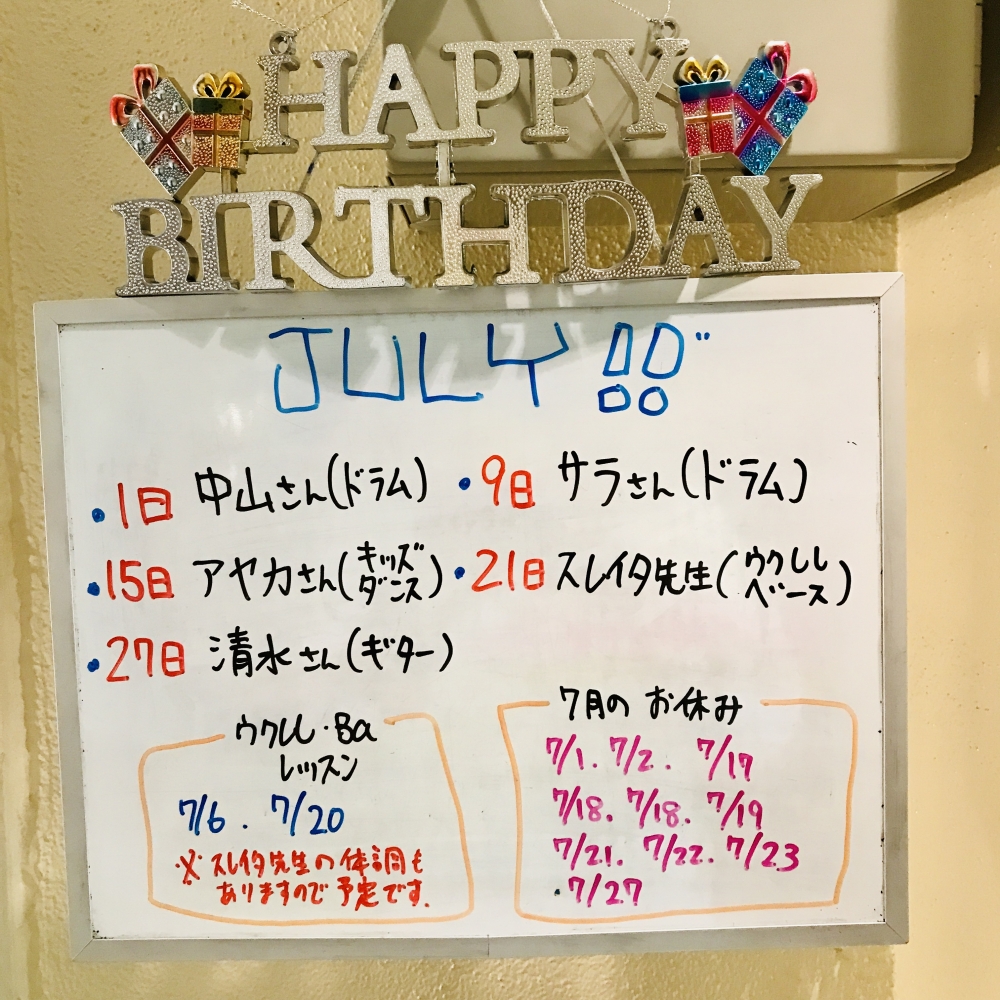 HAPPY
BIRTHDAY
JULY !!"
・1日 中山さん(ドラム) ・9日 サラさん(ドラム)
・15日 アヤカさん(キッズダンス) ・21日 スレイタ先生(ウクレレベース)
・27日 清水さん(ギター)
ウクレレ・Ba
レッスン
7/6. 7/20
※スレイタ先生の体調も
ありますので予定です.
7月の お休み
7/1. 7/2. 7/17
7/18. 7/18. 7/19
7/21. 7/22. 7/23
・7/27